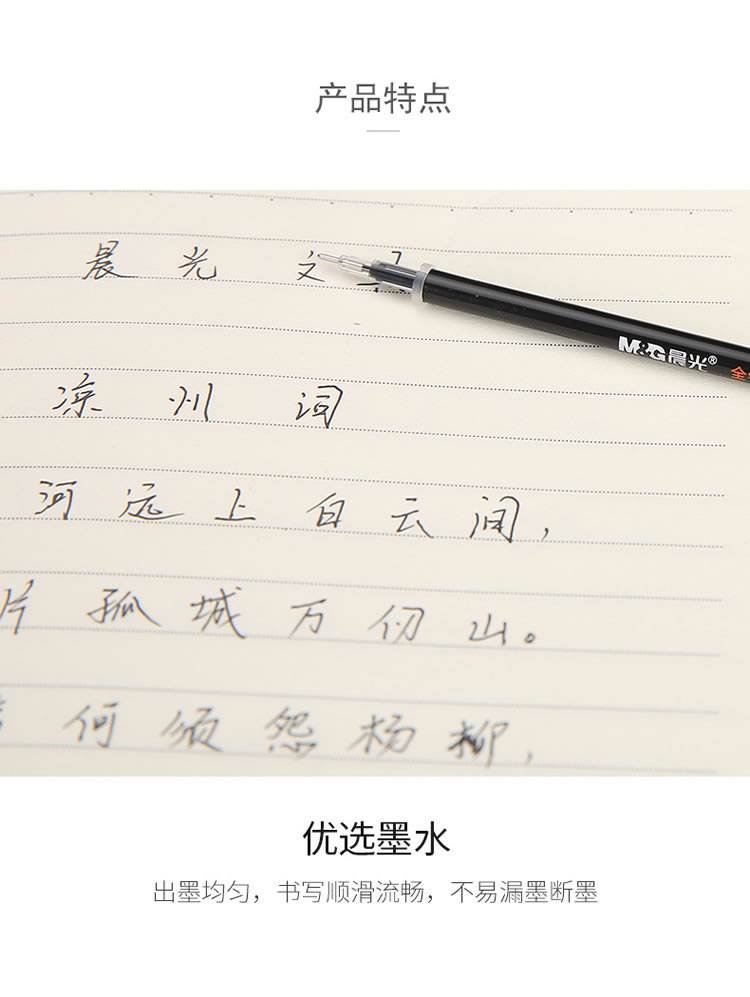 产品特点
晨 光 文
M&G晨光®
凉 州 词
河 远 上 白 云 间，
片 孤 城 万 仞 山。
何 须 怨 杨 柳，
优选墨水
出墨均匀，书写顺滑流畅，不易漏墨断墨